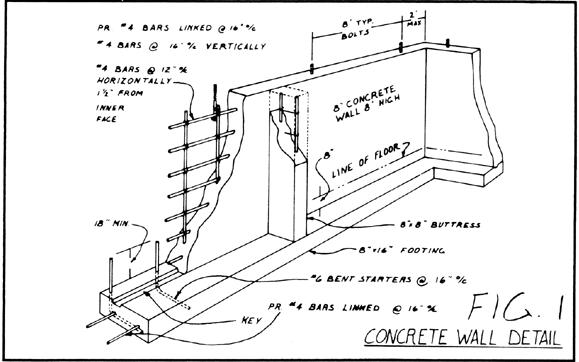 PR #4 BARS LINKED @ 16" %
#4 BARS @ 16" % VERTICALLY
#4 BARS @ 12" %
HORIZONTALLY
1½" FROM
INNER
FACE
8' TYP.
BOLTS
2'
MAX
8" CONCRETE
WALL 8' HIGH
8"
LINE OF FLOOR
18" MIN.
8"x8" BUTTRESS
8"x16" FOOTING
#6 BENT STARTERS @ 16" %
PR #4 BARS LINKED @ 16" %
KEY
FIG. 1
CONCRETE WALL DETAIL